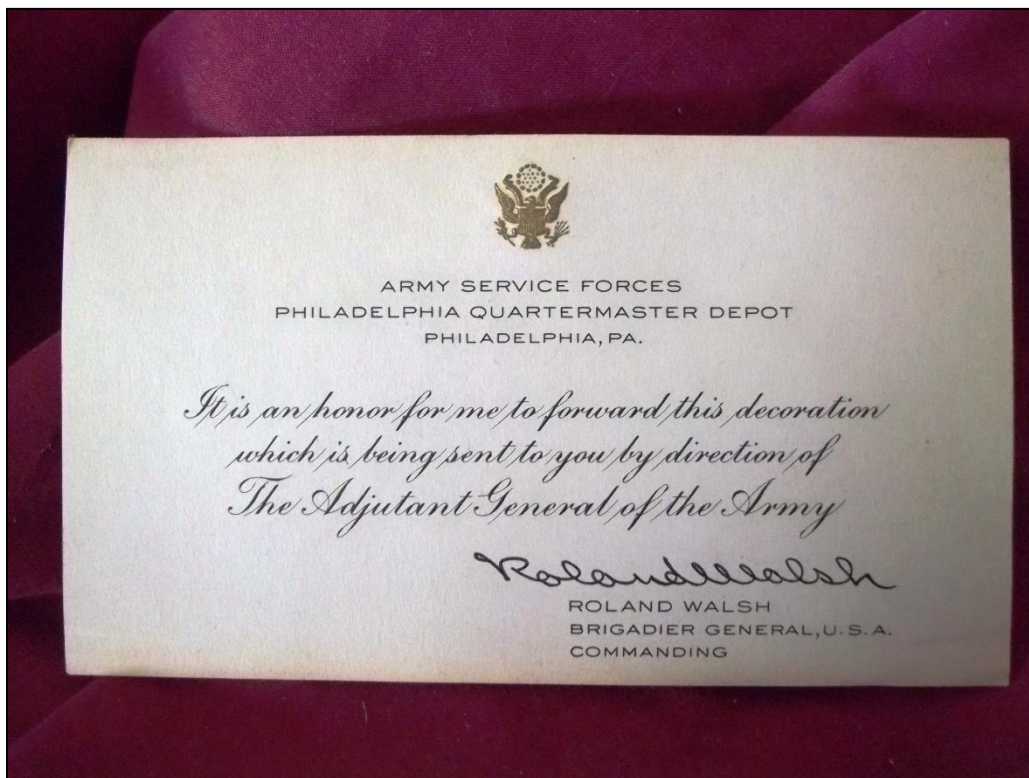 ARMY SERVICE FORCES
PHILADELPHIA QUARTERMASTER DEPOT
PHILADELPHIA, PA.
It is an honor for me to forward this decoration
which is being sent to you by direction of
The Adjutant General of the Army
Roland Walsh
ROLAND WALSH
BRIGADIER GENERAL, U.S.A.
COMMANDING